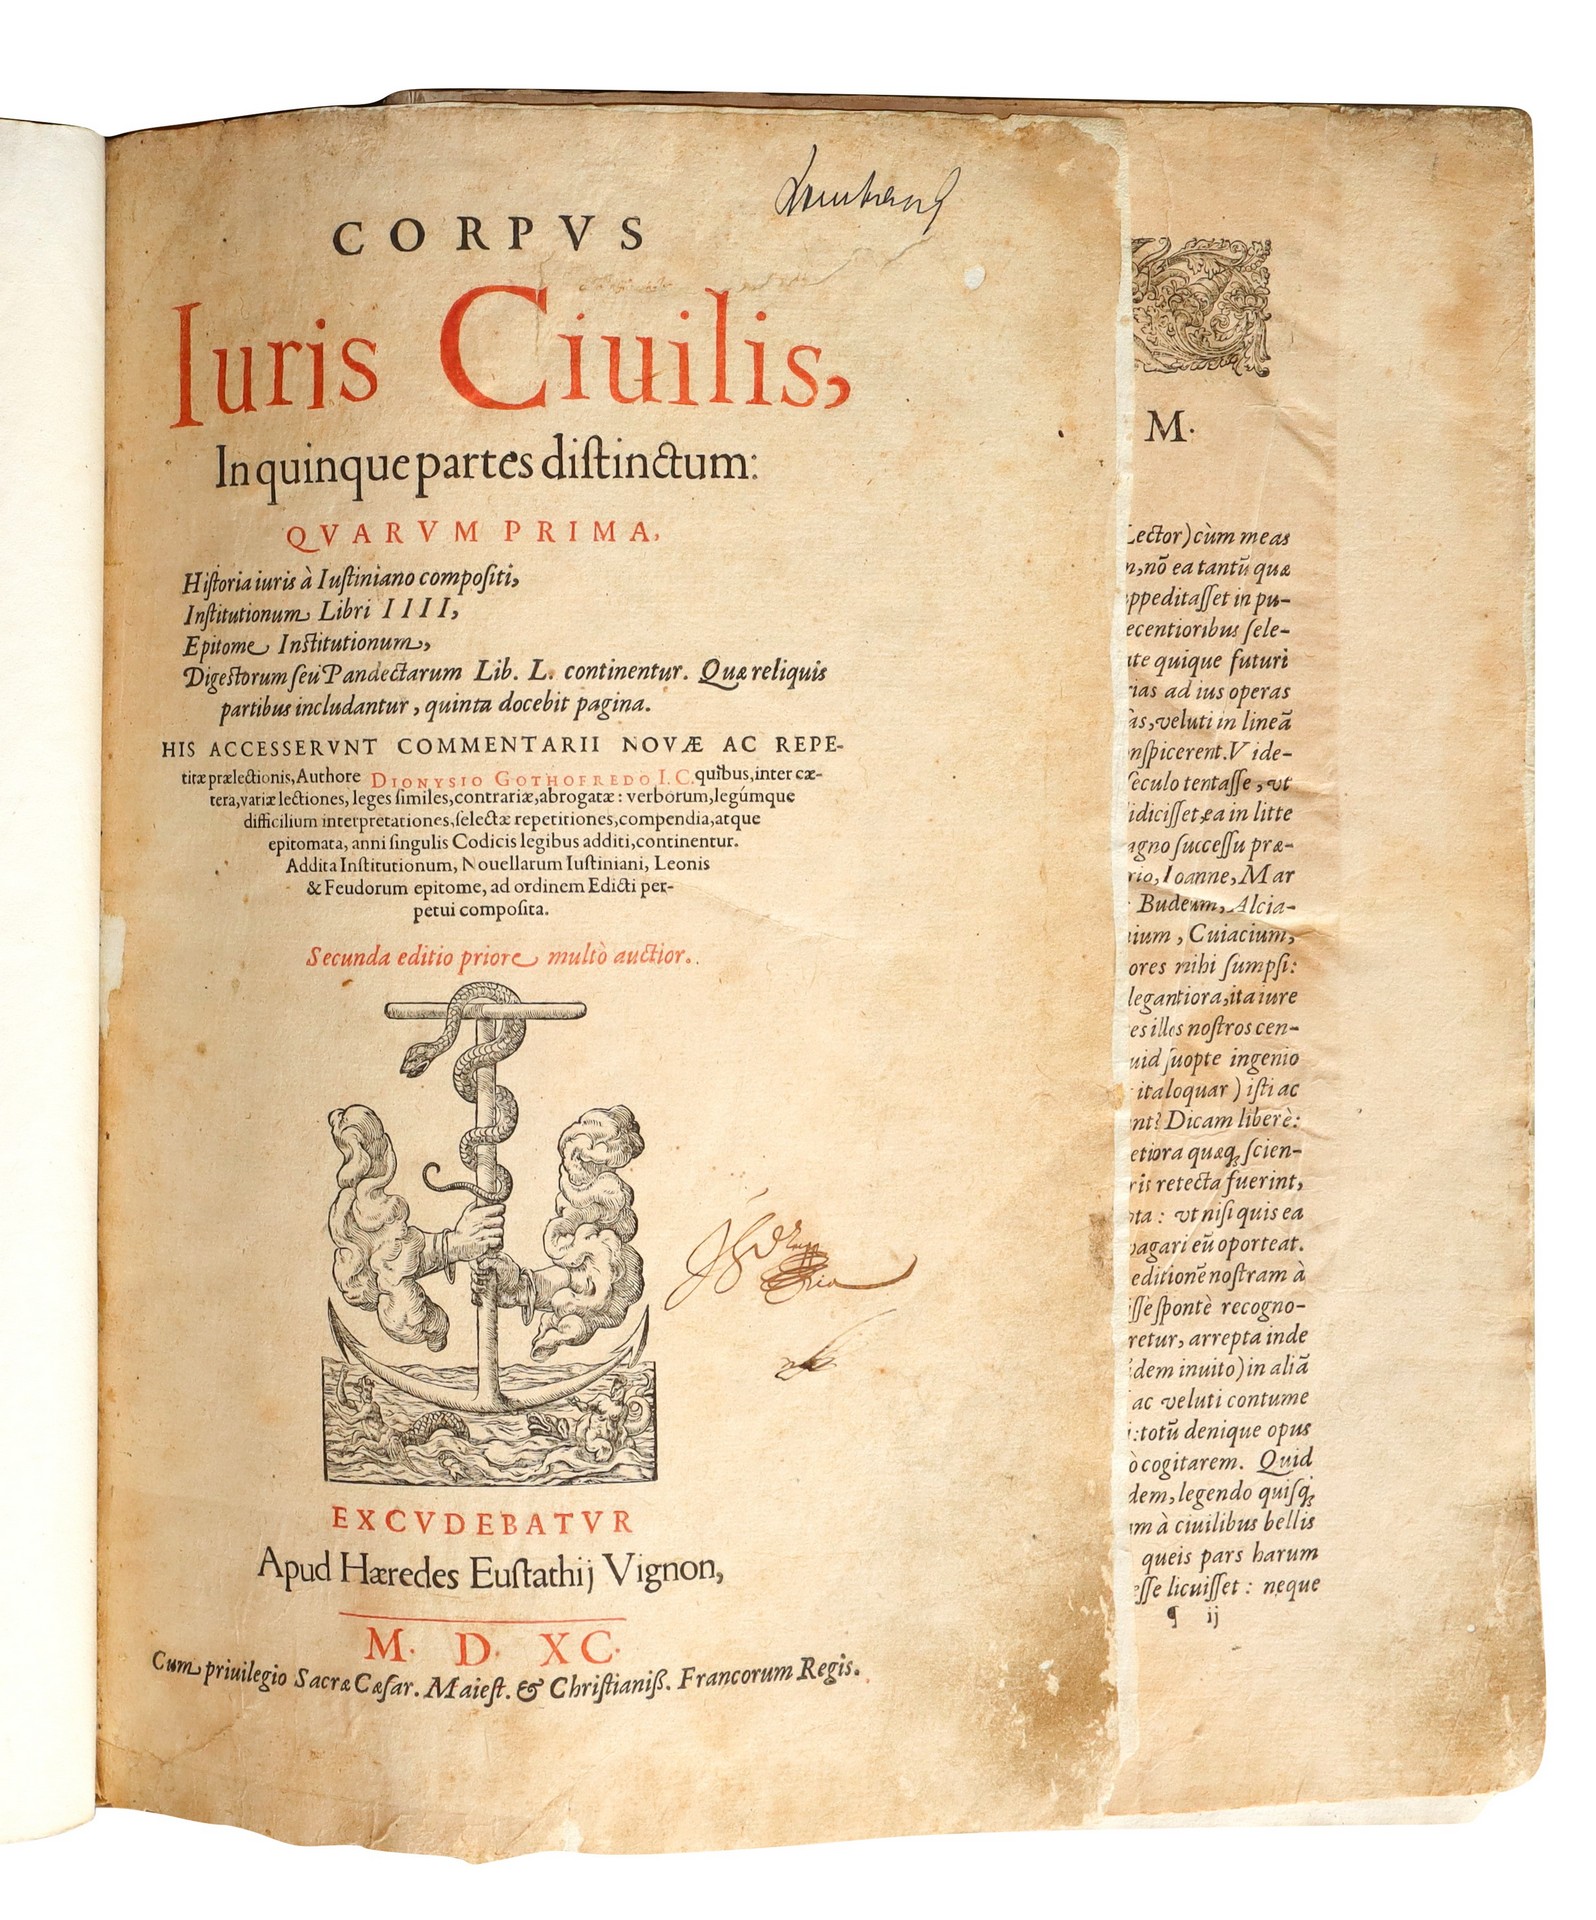 CORPVS
Iuris Ciuilis,
In quinque partes distinctum:
QVARVM PRIMA,
Historia iuris à Iustiniano compositi,
Institutionum Libri IIII,
Epitome Institutionum,
Digestorum seu Pandectarum Lib. L. continentur. Quæ reliquis
partibus includantur, quinta docebit pagina.
HIS ACCESSERVNT COMMENTARII NOVÆ AC REPE-
titæ prælectionis, Authore DIONYSIO GOTHOFREDO I. C. quibus, inter cæ-
tera, variæ lectiones, leges similes, contrariæ, abrogatæ: verborum, legúmque
difficilium interpretationes, selectæ repetitiones, compendia, atque
epitomata, anni singulis Codicis legibus additi, continentur.
Addita Institutionum, Nouellarum Iustiniani, Leonis
& Feudorum epitome, ad ordinem Edicti per-
petui composita.
Secunda editio priore multò auctior.
EXCVDEBATVR
Apud Hæredes Eustathij Vignon,
M. D. XC.
Cum priuilegio Sacræ Cæsar. Maiest. & Christianiß. Francorum Regis.
M.
Lector) cùm meas
nō ea tantū quæ
in pu-
sele-
quique futuri
ad ius operas
veluti in lineā
V ide-
seculo tentasse, vt
ea in litte
successu præ-
Ioanne, Mar
Budeum, Alcia-
Cuiacium,
nihi sumpsi:
ita iure
es illos nostros cen-
suopte ingenio
ita loquar) isti ac
Dicam liberè:
quæq; scien-
retecta fuerint,
vt nisi quis ea
eū oporteat.
editionē nostram à
spontè recogno-
arrepta inde
inuito) in aliā
ac veluti contume
totū denique opus
cogitarem. Quid
legendo quisq;
à ciuilibus bellis
queis pars harum
licuisset: neque
¶ ij